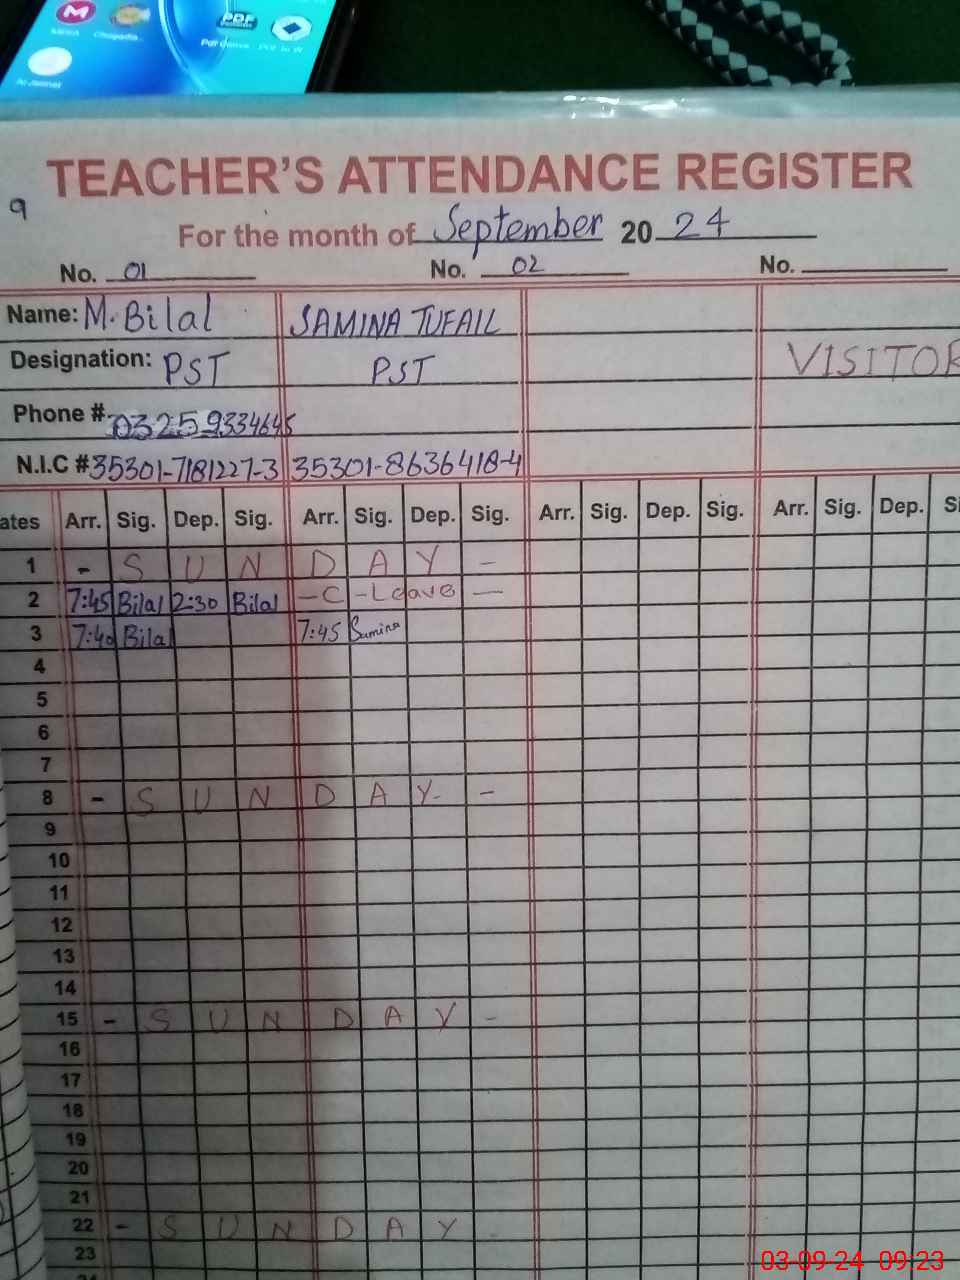 PDF
TEACHER'S ATTENDANCE REGISTER
9
For the month of September 20 24
No. 01 No. 02 No.
Name: M. Bilal SAMINA TUFAIL
Designation: PST PST VISITOR
Phone # 03259334645
N.I.C # 35301-7181227-3 35301-8636418-4
ates Arr. Sig. Dep. Sig. Arr. Sig. Dep. Sig. Arr. Sig. Dep. Sig. Arr. Sig. Dep. Si
1 - S U N D A Y -
2 7:45 Bilal 2:30 Bilal - C - Leave -
3 7:40 Bilal 7:45 Samina
4
5
6
7
8 - S U N D A Y -
9
10
11
12
13
14
15 - S U N D A Y -
16
17
18
19
20
21
22 - S U N D A Y
23
24
03-09-24 09:23